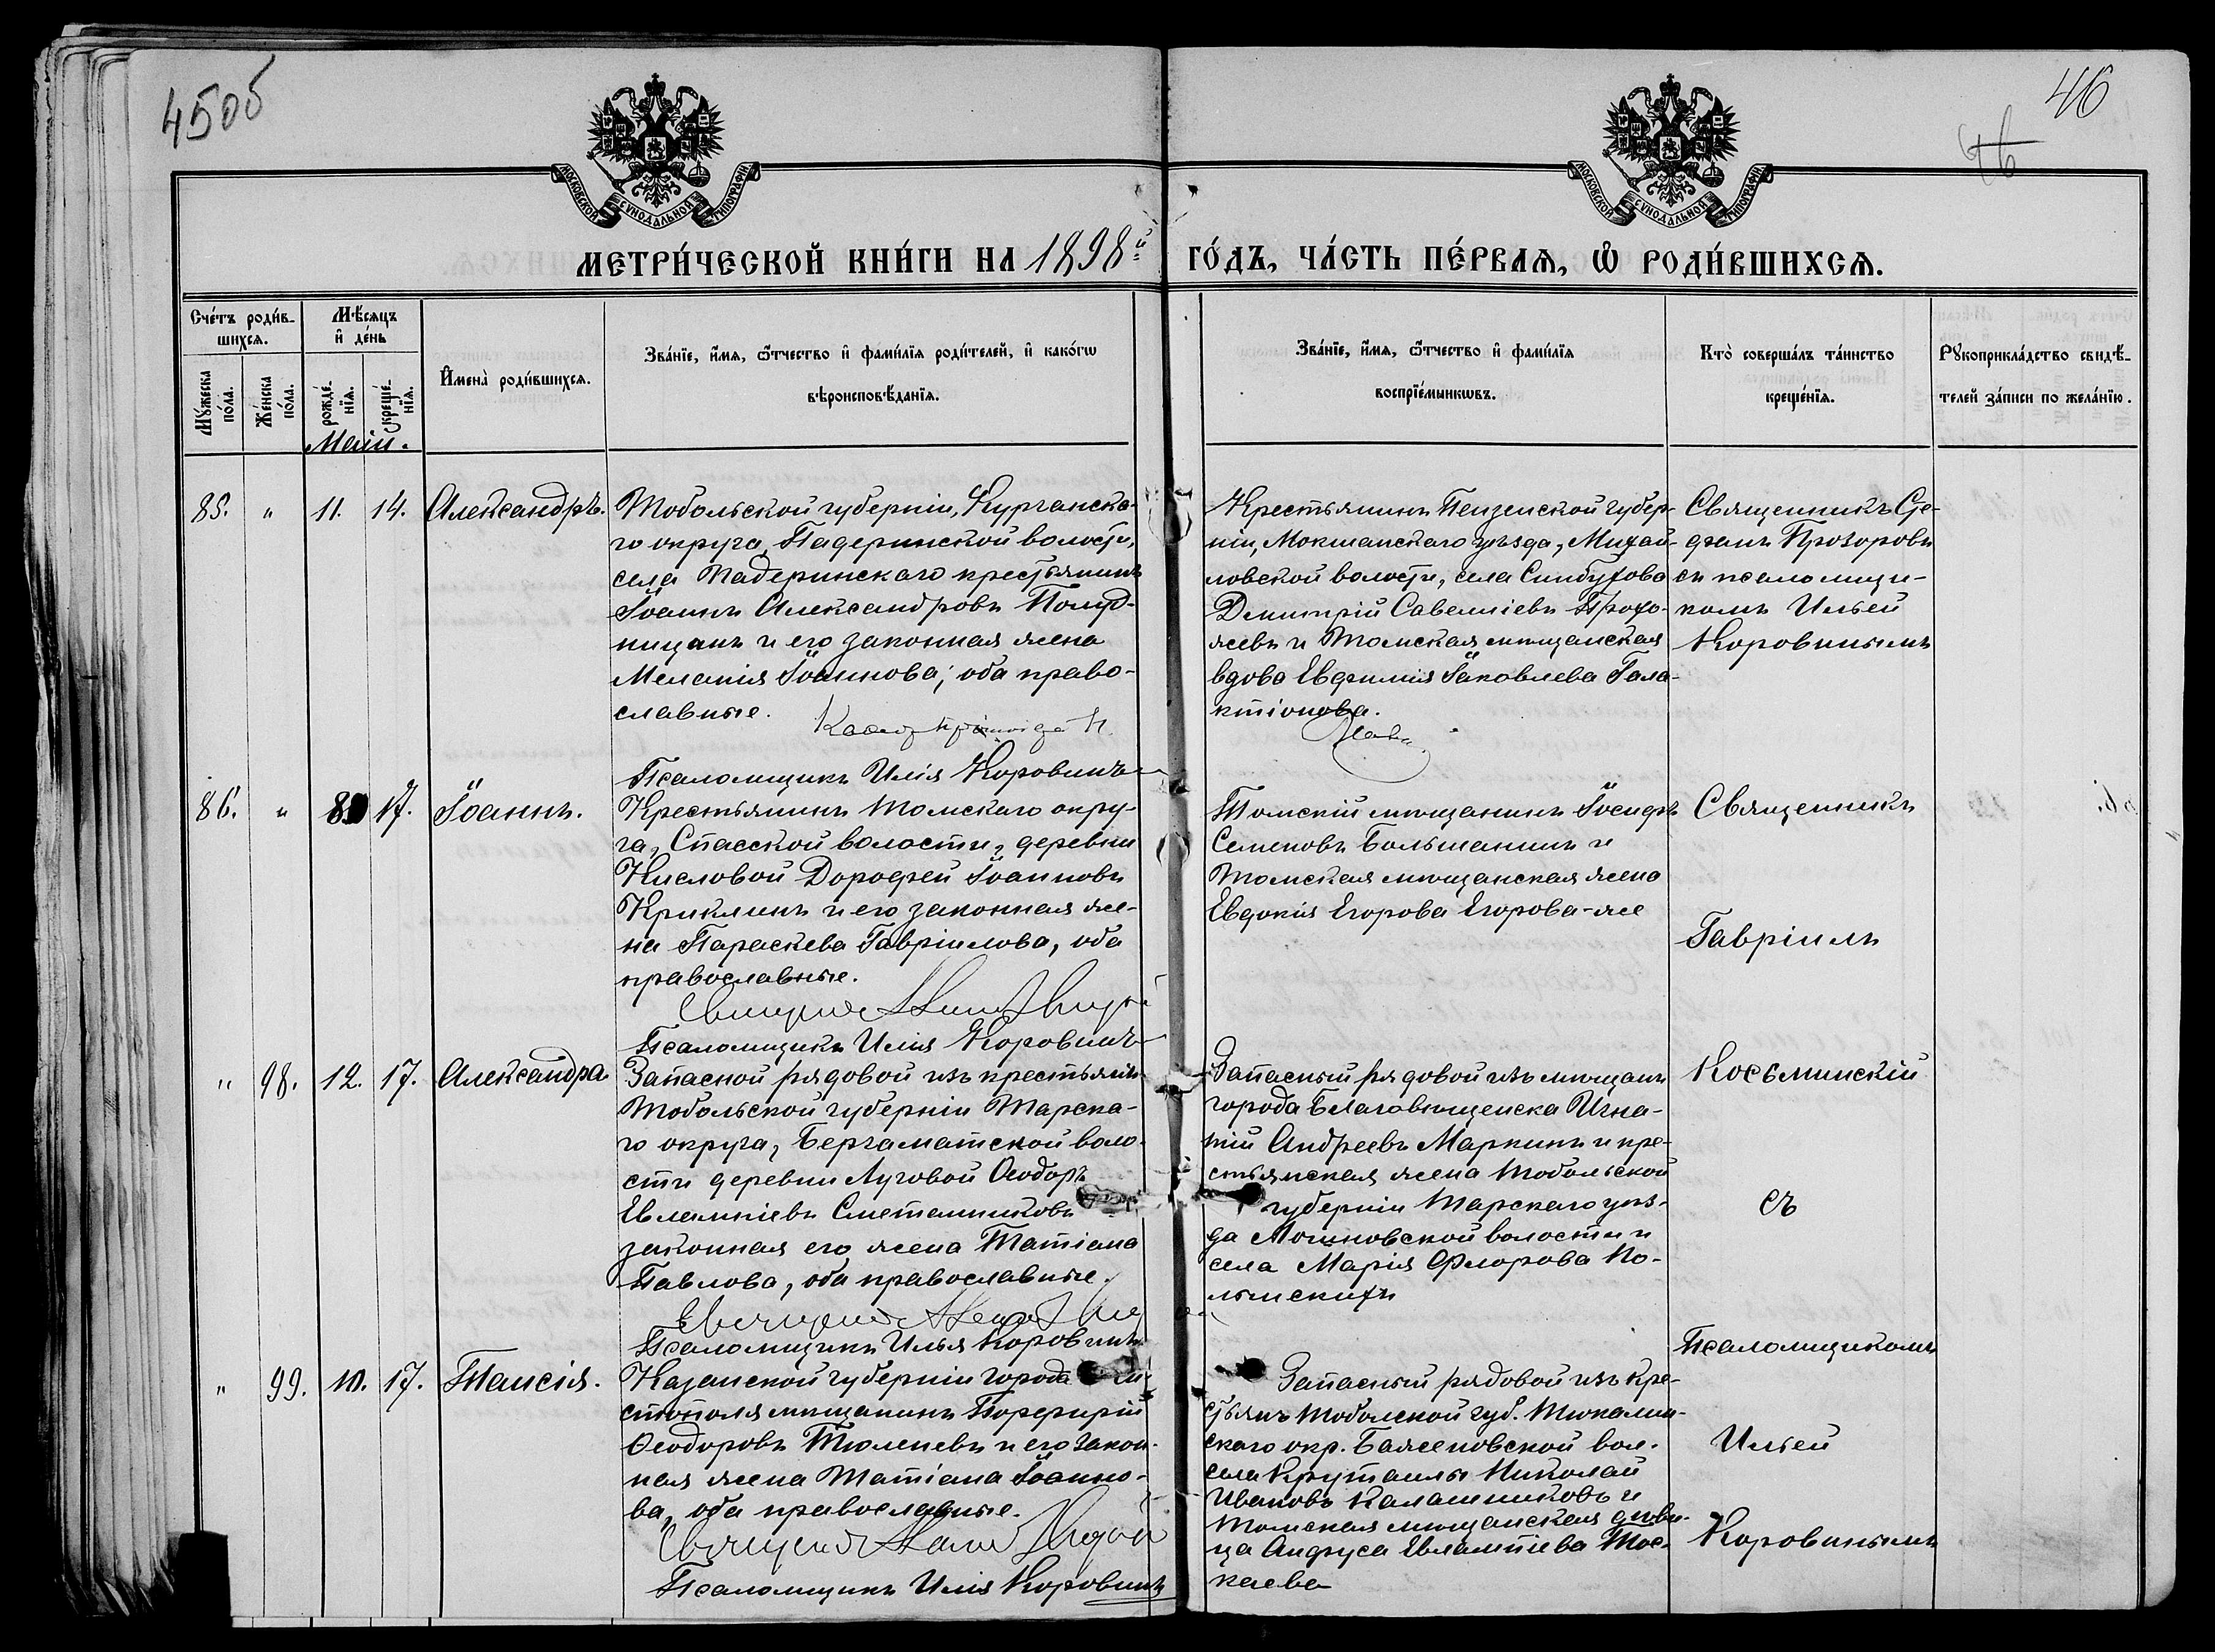 45об
46
МОСКОВСКОЙ СѴНОДАЛЬНОЙ ТИПОГРАФІИ
МОСКОВСКОЙ СѴНОДАЛЬНОЙ ТИПОГРАФІИ
МЕТРИ́ЧЕСКОЙ КНИ́ГИ НА 1898й ГО́ДЪ, ЧА́СТЬ ПЕ́РВАѦ, Ѡ РОДИ́ВШИХСѦ.
Сче́тъ роди́в-
шихсѧ.
Мꙋ́жеска
по́ла.
Же́нска
по́ла.
Мѣ́сѧцъ
и҆ де́нь
рожде́-
нїѧ.
креще́-
нїѧ.
И҆мена̀ роди́вшихсѧ.
Зва́нїе, и҆́мѧ, ѻ҆́тчество и҆ фами́лїѧ роди́телей, и҆ како́гѡ
вѣроисповѣ́данїѧ.
Зва́нїе, и҆́мѧ, ѻ҆́тчество и҆ фами́лїѧ
воспрїе́мникѡвъ.
Кто̀ соверша́лъ та́инство
креще́нїѧ.
Рꙋкоприкла́дство свидѣ́-
телей за́писи по жела́нїю.
Маій.
85. " 11. 14. Александръ.
Тобольской губерніи, Курганска-
го округа, Падеринской волости,
села Падеринскаго крестьянинъ
Іоаннъ Александровъ Полуд-
ницынъ и его законная жена
Меланія Іоаннова; оба право-
славные.
Псаломщикъ Илія Коровинъ
Крестьянинъ Пензенской губер-
ніи, Мокшанскаго уѣзда, Михай-
ловской волости, села Синбухова
Димитрій Савеліевъ Прохо-
жевъ и Томская мѣщанская
вдова Евфимія Іаковлева Гала-
ктіонова.
Священникъ Сте-
фанъ Прозоровъ
съ псаломщи-
комъ Ильей
Коровинымъ
86. " 8 17. Іоаннъ.
Крестьянинъ Томскаго окру-
га, Спасской волости, деревни
Кисловой Дорофей Іоанновъ
Криклинъ и его законная же-
на Параскева Гавріилова, оба
православные.
Псаломщикъ Илія Коровинъ
Томскій мѣщанинъ Іосифъ
Семеновъ Большанинъ и
Томская мѣщанская жена
Евдокія Егорова Егорова-же
Священникъ
Гавріилъ
" 98. 12. 17. Александра.
Запасной рядовой изъ крестьянъ
Тобольской губерніи Тарска-
го округа, Бергаматской воло-
сти деревни Луговой Ѳеодоръ
Евлампіевъ Сметанниковъ
законная его жена Татіана
Павлова, оба православные.
Псаломщикъ Илья Коровинъ
Запасный рядовой изъ мѣщанъ
города Благовѣщенска Игна-
тій Андреевъ Маркинъ и кре-
стьянская жена Тобольской
губерніи Тарскаго уѣз-
да Логиновской волости и
села Марія Флорова По-
льскихъ
Косьминскій
съ
" 99. 10. 17. Таисія.
Казанской губерніи города Чи-
стополя мѣщанинъ Порфирій
Ѳеодоровъ Тюленевъ и его закон-
ная жена Татіана Іоанно-
ва, оба православные.
Псаломщикъ Илія Коровинъ
Запасный рядовой изъ кре-
стьянъ Тобольской губ. Тюкалин-
скаго окр. Баженовской вол.
села Крутаилы Николай
Ивановъ Калашниковъ и
Томская мѣщанская дѣви-
ца Анфуса Евлампіева Тос-
каева
Псаломщикомъ
Ильей
Коровинымъ